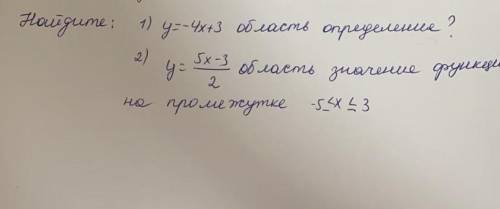 Найдите: 1) y=-4x+3 область определение?
2) y= \frac{5x-3}{2} область значение функци
на промежутке -5≤x≤3